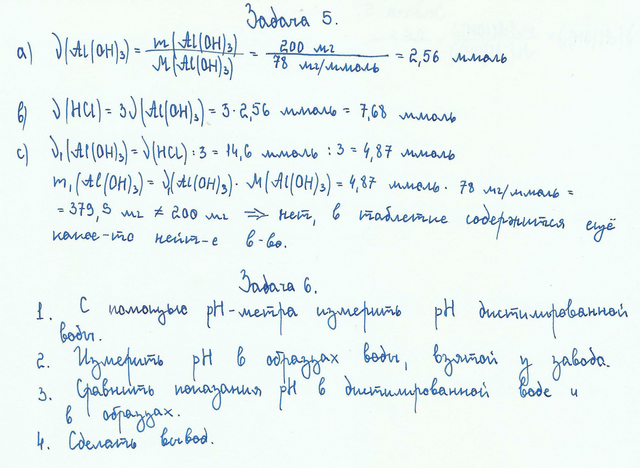 Задача 5.
a) ν(Al(OH)₃) = m(Al(OH)₃)/M(Al(OH)₃) = 200 мг/78 мг/ммоль = 2,56 ммоль
b) ν(HCl) = 3ν(Al(OH)₃) = 3·2,56 ммоль = 7,68 ммоль
c) ν₁(Al(OH)₃) = ν(HCl) : 3 = 14,6 ммоль : 3 = 4,87 ммоль
m₁(Al(OH)₃) = ν₁(Al(OH)₃) · M(Al(OH)₃) = 4,87 ммоль · 78 мг/ммоль =
= 379,9 мг ≠ 200 мг ⇒ нет, в таблетке содержится ещё
какое-то нейт-е в-во.
Задача 6.
1. С помощью pH-метра измерить pH дистилированной
воды.
2. Измерить pH в образцах воды, взятой у завода.
3. Сравнить показания pH в дистилированной воде и
в образцах.
4. Сделать вывод.